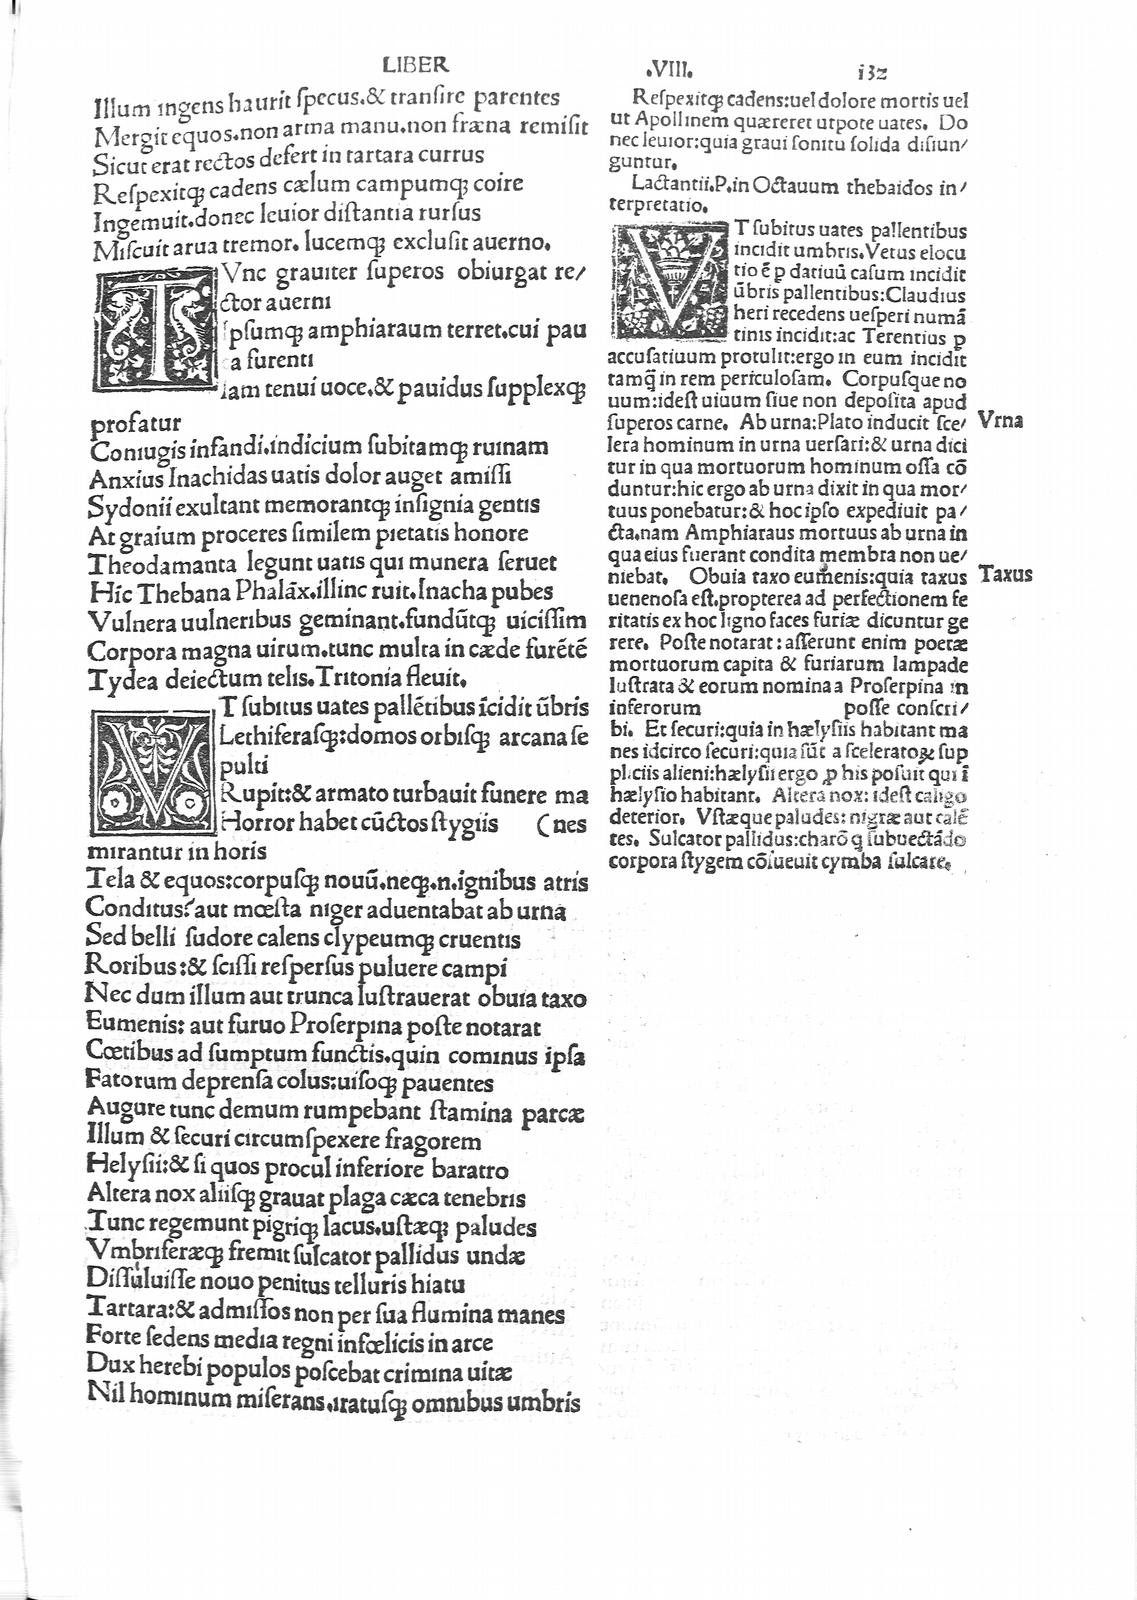 LIBER .VIII. i3z
Illum ingens haurit ſpecus.& tranſire parentes
Mergit equos.non arma manu.non fræna remiſit
Sicut erat rectos defert in tartara currus
Reſpexitq; cadens cælum campumq; coire
Ingemuit.donec leuior diſtantia rurſus
Miſcuit arua tremor. lucemq; excluſit auerno.
TVnc grauiter ſuperos obiurgat re/
ctor auerni
Ipſumq; amphiaraum terret.cui pau
a furenti
iam tenui uoce.& pauidus ſupplexq;
profatur
Coniugis infandi.indicium ſubitamq; ruinam
Anxius Inachidas uatis dolor auget amiſſi
Sydonii exultant memorantq; inſignia gentis
At graium proceres ſimilem pietatis honore
Theodamanta legunt uatis qui munera ſeruet
Hic Thebana Phalãx.illinc ruit.Inacha pubes
Vulnera uulneribus geminant.fundũtq; uiciſſim
Corpora magna uirum.tunc multa in cæde furẽtẽ
Tydea deiectum telis.Tritonia fleuit.
VT ſubitus uates pallẽtibus ĩcidit ũbris
Lethiferaſq;:domos orbiſq; arcana ſe
pulti
Rupit:& armato turbauit funere ma
Horror habet cũctos ſtygiis (nes
mirantur in horis
Tela & equos:corpuſq; nouũ.neq;.n.ignibus atris
Conditus:aut mœſta niger aduentabat ab urna
Sed belli ſudore calens clypeumq; cruentis
Roribus:& ſciſſi reſperſus puluere campi
Nec dum illum aut trunca luſtrauerat obuia taxo
Eumenis: aut furuo Proſerpina poſte notarat
Cœtibus ad ſumptum functis.quin cominus ipſa
Fatorum deprenſa colus:uiſoq; pauentes
Augure tunc demum rumpebant ſtamina parcæ
Illum & ſecuri circumſpexere fragorem
Helyſii:& ſi quos procul inferiore baratro
Altera nox aliiſq; grauat plaga cæca tenebris
Tunc regemunt pigriq; lacus.uſtæq; paludes
Vmbriferæq; fremit ſulcator pallidus undæ
Diſſuluiſſe nouo penitus telluris hiatu
Tartara:& admiſſos non per ſua flumina manes
Forte ſedens media regni infœlicis in arce
Dux herebi populos poſcebat crimina uitæ
Nil hominum miſerans.iratuſq; omnibus umbris
Reſpexitq; cadens:uel dolore mortis uel
ut Apollinem quæreret utpote uates. Do
nec leuior:quia graui ſonitu ſolida diſiun/
guntur.
Lactantii.P.in Octauum thebaidos in/
terpretatio.
VT ſubitus uates pallentibus
incidit umbris.Vetus elocu
tio ẽ p datiuũ caſum incidit
ũbris pallentibus:Claudius
heri recedens ueſperi numã
tinis incidit:ac Terentius p
accuſatiuum protulit:ergo in eum incidit
tamq̃ in rem periculoſam. Corpuſque no
uum:ideſt uiuum ſiue non depoſita apud
ſuperos carne. Ab urna:Plato inducit ſce/
lera hominum in urna uerſari:& urna dici
tur in qua mortuorum hominum oſſa cõ
duntur:hic ergo ab urna dixit in qua mor/
tuus ponebatur:& hoc ipſo expediuit pa/
cta.nam Amphiaraus mortuus ab urna in
qua eius fuerant condita membra non ue/
niebat. Obuia taxo eumenis:quia taxus
uenenoſa eſt.propterea ad perfectionem fe
ritatis ex hoc ligno faces furiæ dicuntur ge
rere. Poſte notarat: aſſerunt enim poetæ
mortuorum capita & furiarum lampade
luſtrata & eorum nomina a Proſerpina in
inferorum poſſe conſcri/
bi. Et ſecuri:quia in hælyſiis habitant ma
nes idcirco ſecuri:quia ſũt a ſceleratoꝝ ſup
pliciis alieni:hælyſii ergo ꝓ his poſuit qui ĩ
hælyſio habitant. Altera nox: ideſt caligo
deterior. Vſtæque paludes: nigræ aut calẽ
tes. Sulcator pallidus:charõ q ſubuectãdo
corpora ſtygem cõſueuit cymba ſulcare.
Vrna
Taxus